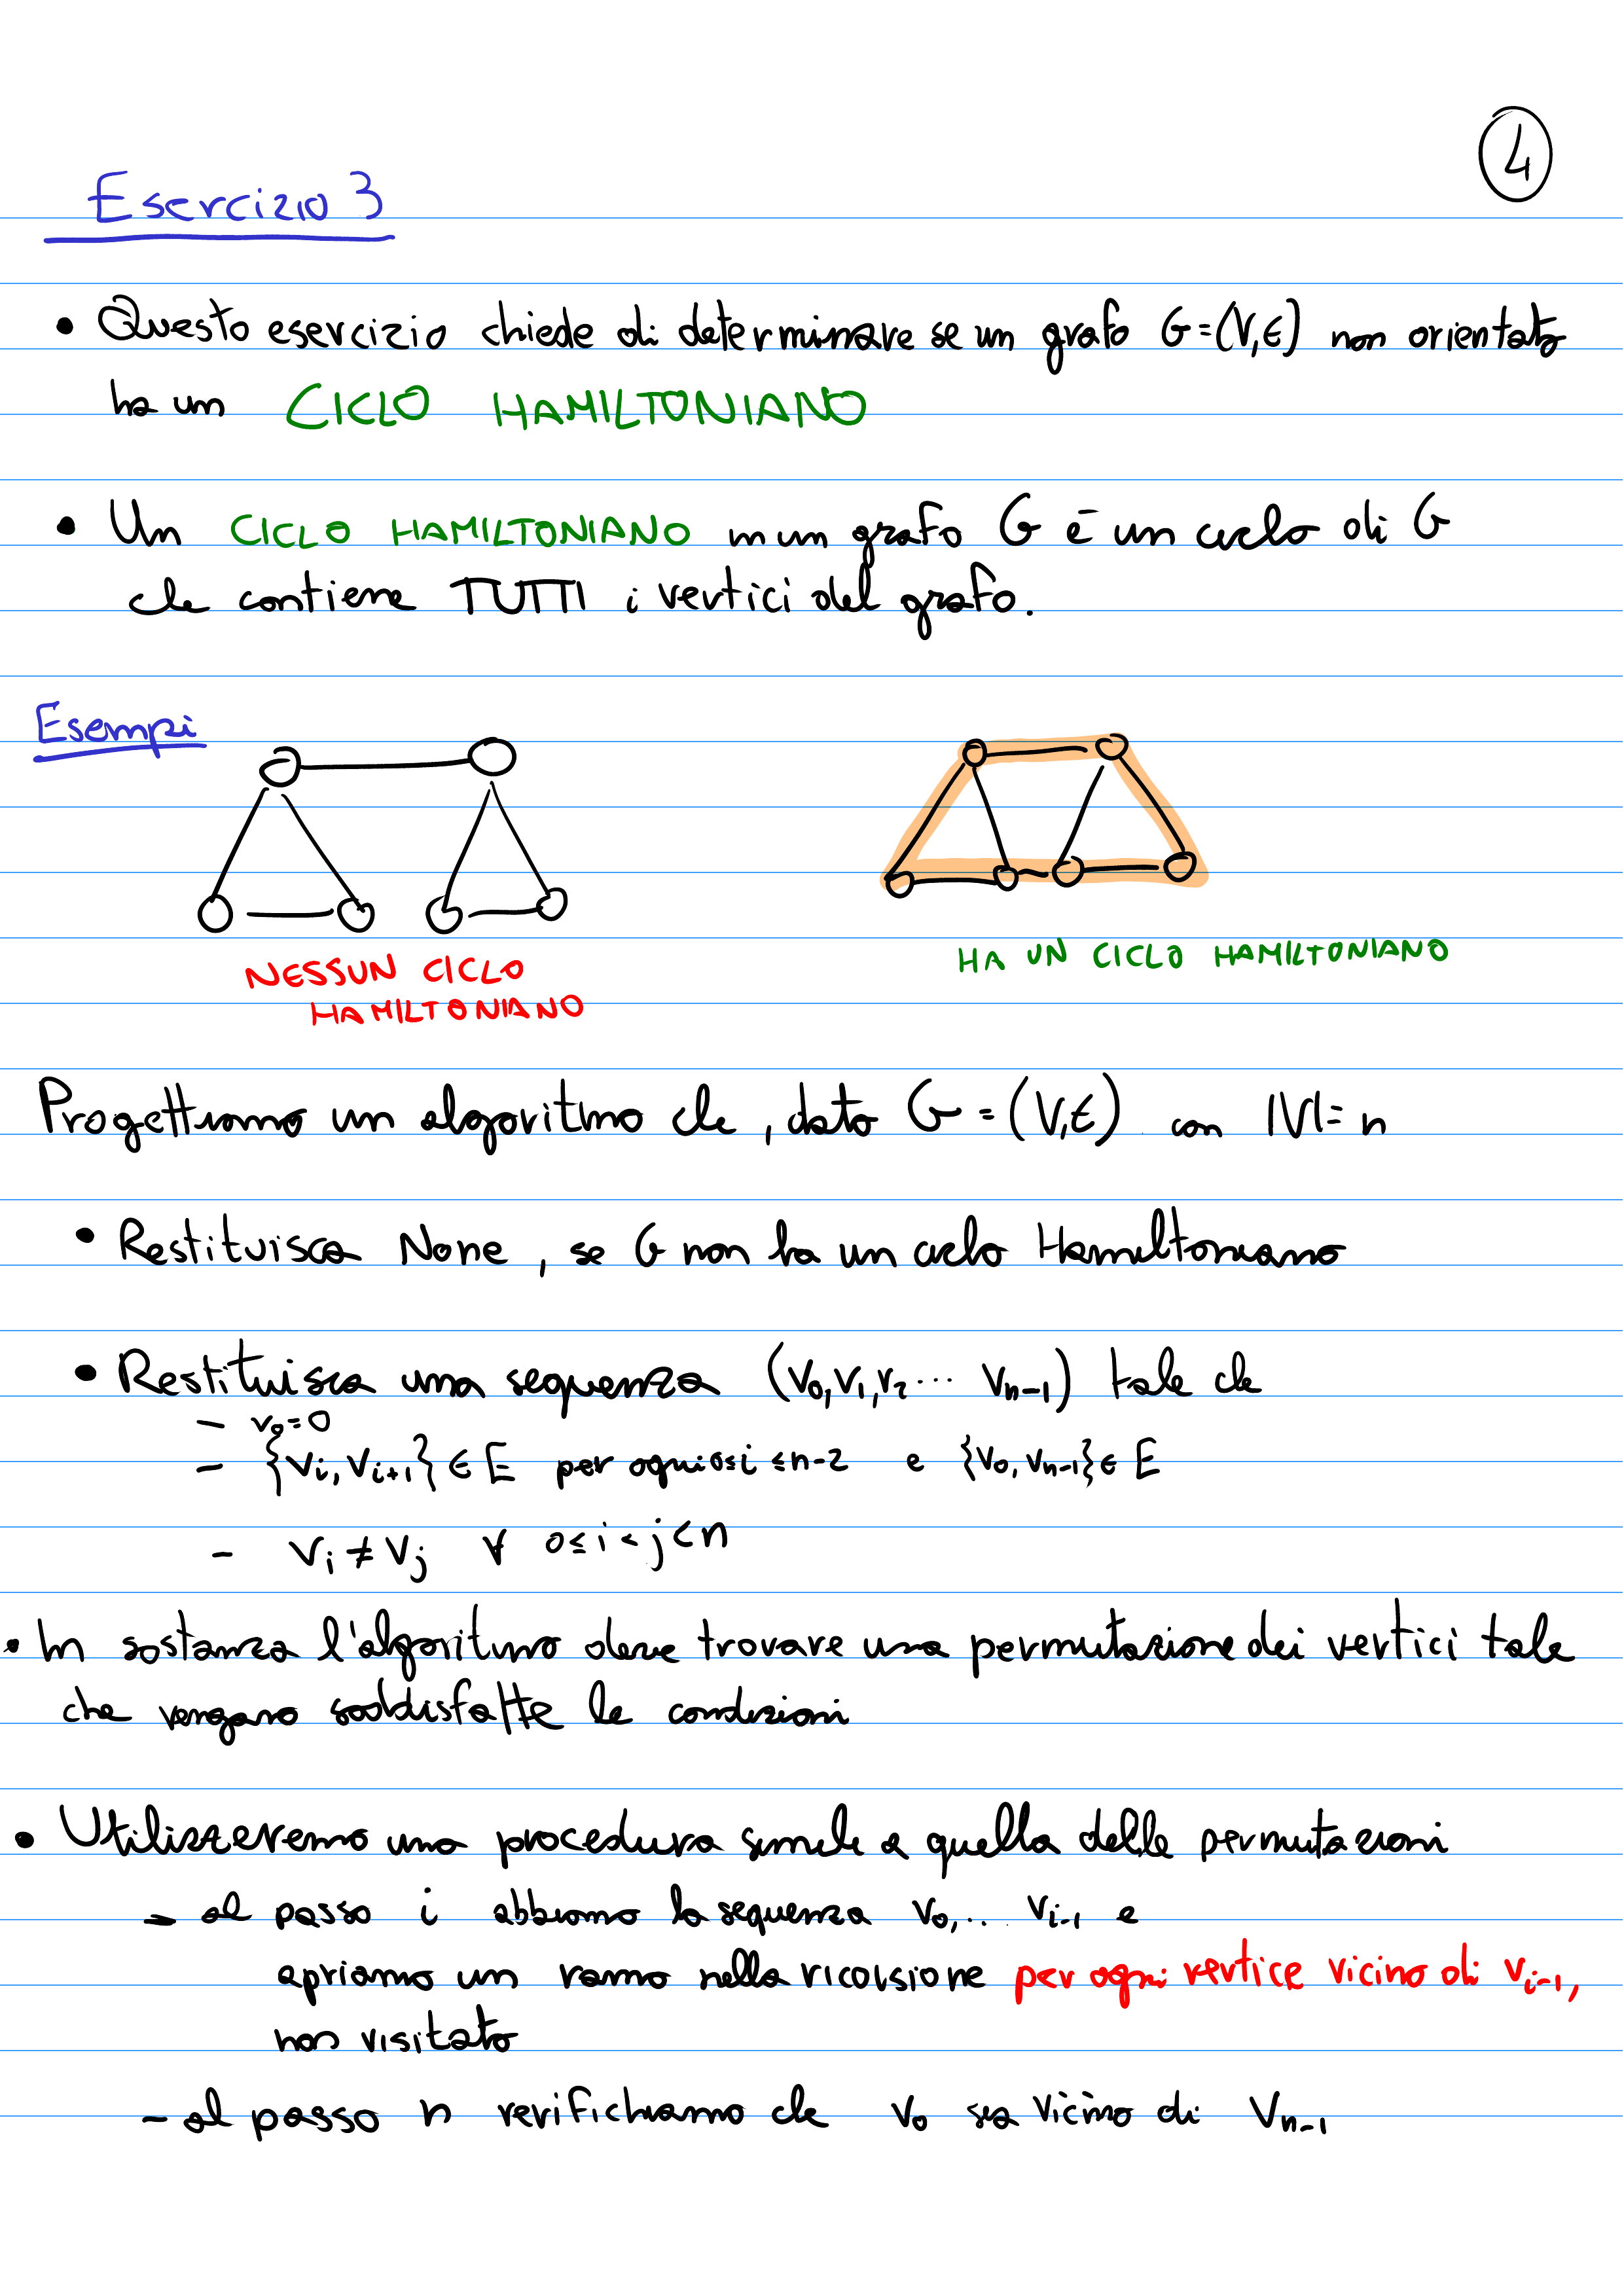 4
Esercizio 3
• Questo esercizio chiede di determinare se un grafo G=(V,E) non orientato
ha un CICLO HAMILTONIANO
• Un CICLO HAMILTONIANO in un grafo G è un ciclo di G
che contiene TUTTI i vertici del grafo.
Esempi
NESSUN CICLO
HAMILTONIANO
HA UN CICLO HAMILTONIANO
Progettiamo un algoritmo che, dato G = (V,E) con |V|= n
• Restituisca None, se G non ha un ciclo Hamiltoniano
• Restituisca una sequenza (v₀,v₁,v₂... vₙ₋₁) tale che
- v₀=0
- {vᵢ, vᵢ₊₁} ∈ E per ogni 0≤i≤n-2 e {v₀, vₙ₋₁}∈ E
- vᵢ ≠ vⱼ ∀ 0≤i<j<n
• In sostanza l'algoritmo deve trovare una permutazione dei vertici tale
che vengano soddisfatte le condizioni
• Utilizzeremo una procedura simile a quella delle permutazioni
- al passo i abbiamo la sequenza v₀,.. vᵢ₋₁ e
apriamo un ramo nella ricorsione per ogni vertice vicino di vᵢ₋₁,
non visitato
- al passo n verifichiamo che v₀ sia vicino di vₙ₋₁